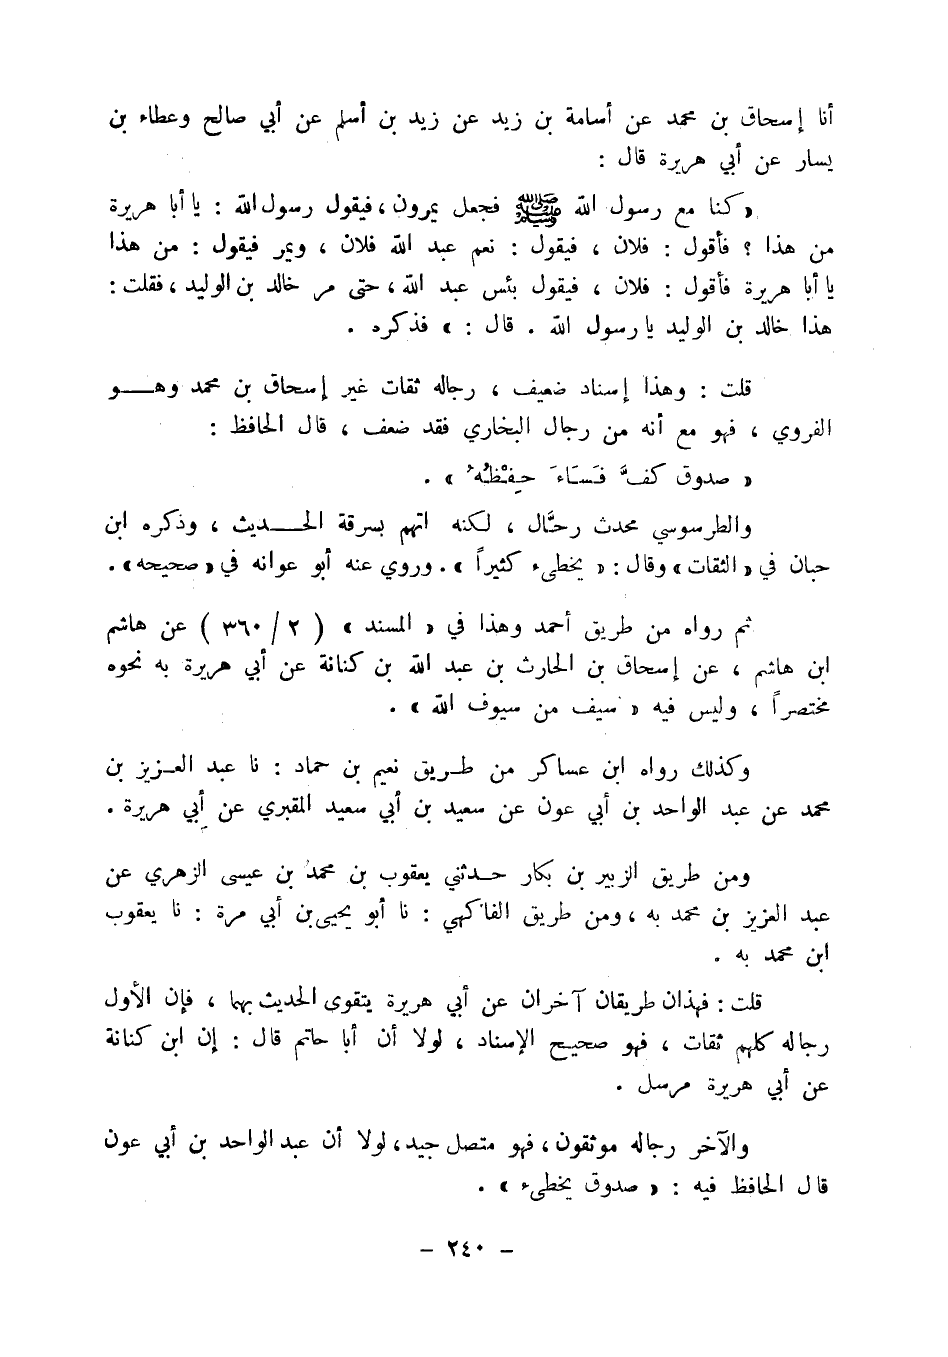 أنا إسحاق بن محمد عن أسامة بن زيد عن زيد بن أسلم عن أبي صالح وعطاء بن
يسار عن أبي هريرة قال :
« كنا مع رسول الله ﷺ فجعل يمرون ، فيقول رسول الله : يا أبا هريرة
من هذا ؟ فأقول : فلان ، فيقول : نعم عبد الله فلان ، ويمر فيقول : من هذا
يا أبا هريرة فأقول : فلان ، فيقول بئس عبد الله ، حتى مر خالد بن الوليد ، فقلت :
هذا خالد بن الوليد يا رسول الله . قال : » فذكره .
قلت : وهذا إسناد ضعيف ، رجاله ثقات غير إسحاق بن محمد وهــو
الفروي ، فهو مع أنه من رجال البخاري فقد ضعف ، قال الحافظ :
« صدوق كفَّ فَسَاءَ حِفْظُهُ » .
والطرسوسي محدث رحَّال ، لكنه اتهم بسرقة الحــديث ، وذكره ابن
حبان في « الثقات » وقال : « يخطىء كثيراً » . وروي عنه أبو عوانه في « صحيحه » .
ثم رواه من طريق أحمد وهذا في « المسند » ( ٢ / ٣٦٠ ) عن هاشم
ابن هاشم ، عن إسحاق بن الحارث بن عبد الله بن كنانة عن أبي هريرة به نحوه
مختصراً ، وليس فيه « سيف من سيوف الله » .
وكذلك رواه ابن عساكر من طـريق نعيم بن حماد : نا عبد العـزيز بن
محمد عن عبد الواحد بن أبي عون عن سعيد بن أبي سعيد المقبري عن أبي هريرة .
ومن طريق الزبير بن بكار حـدثني يعقوب بن محمد بن عيسى الزهري عن
عبد العزيز بن محمد به ، ومن طريق الفاكهي : نا أبو يحيى بن أبي مرة : نا يعقوب
ابن محمد به .
قلت : فهذان طريقان آخران عن أبي هريرة يتقوى الحديث بهما ، فإن الأول
رجاله كلهم ثقات ، فهو صحيح الإسناد ، لولا أن أبا حاتم قال : إن ابن كنانة
عن أبي هريرة مرسل .
والآخر رجاله موثقون ، فهو متصل جيد ، لولا أن عبد الواحد بن أبي عون
قال الحافظ فيه : « صدوق يخطىء » .
– ٢٤٠ –